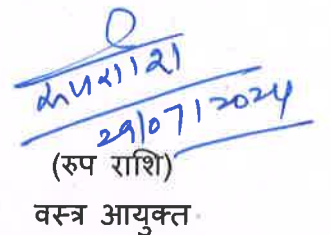 रुपराशि
29/07/2024
(रुप राशि)
वस्त्र आयुक्त